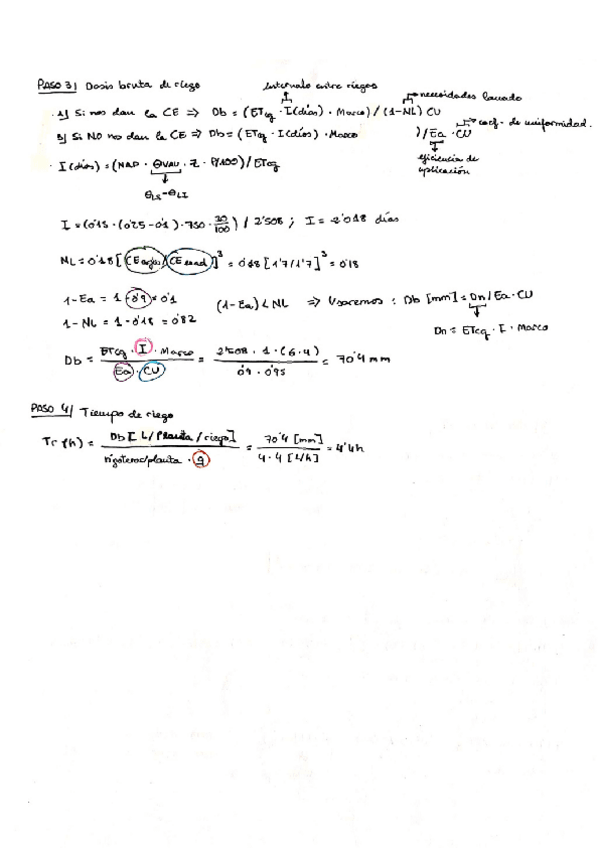 PASO 3| Dosis bruta de riego
Intervalo entre riegos
necesidades lavado
· A) Si nos dan la CE ⇒ Db = (ETcg · I(días) · Marco) / (1-NL) CU
coef. de uniformidad.
B) Si NO nos dan la CE ⇒ Db = (ETcg · I(días) · Marco) / Ea · CU
eficiencia de aplicación
· I(días) = (NAP · θVAU · Z · P/100) / ETcg
θLS - θLI
I = (0'15 · (0'25 - 0'1) · 750 · 30/100) / 2'508 ; I = 2'018 días
NL = 0'18 [(CEagua)/(CEsuel)]³ = 0'18 [1'7/1'7]³ = 0'18
1-Ea = 1-0'9 = 0'1
(1-Ea) < NL ⇒ Usaremos : Db [mm] = Dn / Ea · CU
1-NL = 1-0'18 = 0'82
Dn = ETcg · I · Marco
Db = ETcg · I · Marco / Ea · CU = 2'508 · 1 · (6·4) / 0'9 · 0'95 = 70'4 mm
PASO 4| Tiempo de riego
Tr (h) = Db [L/planta/riego] / nºgoteros/planta · q = 70'4 [mm] / 4 · 4 [L/h] = 4'4h